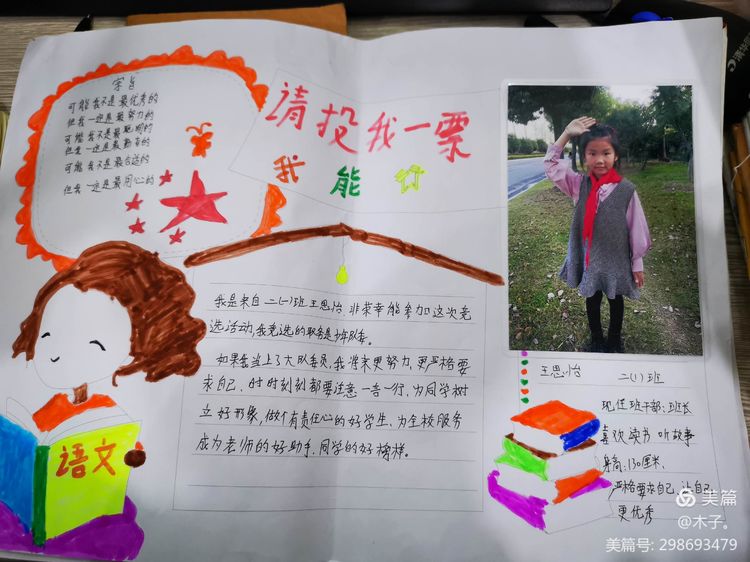 宗旨
可能我不是最优秀的
但我一定是最努力的
可能我不是最聪明的
但我一定是最勤奋的
可能我不是最合适的
但我一定是最用心的
请投我一票
我能行
我是来自二(一)班王思怡 非常荣幸能参加这次竞
选活动,我竞选的职务是少年队委。
如果我当上了大队委员,我将来更努力,更严格要
求自己,时时刻刻都要注意一言一行,为同学树
立好形象,做个有责任心的好学生、为全校服务
成为老师的好助手、同学的好榜样。
语文
王思怡 二(1)班
现任班干部:班长
喜欢读书 听故事
身高:130厘米
严格要求自己,让自己
更优秀
美篇
@木子。
美篇号: 298693479